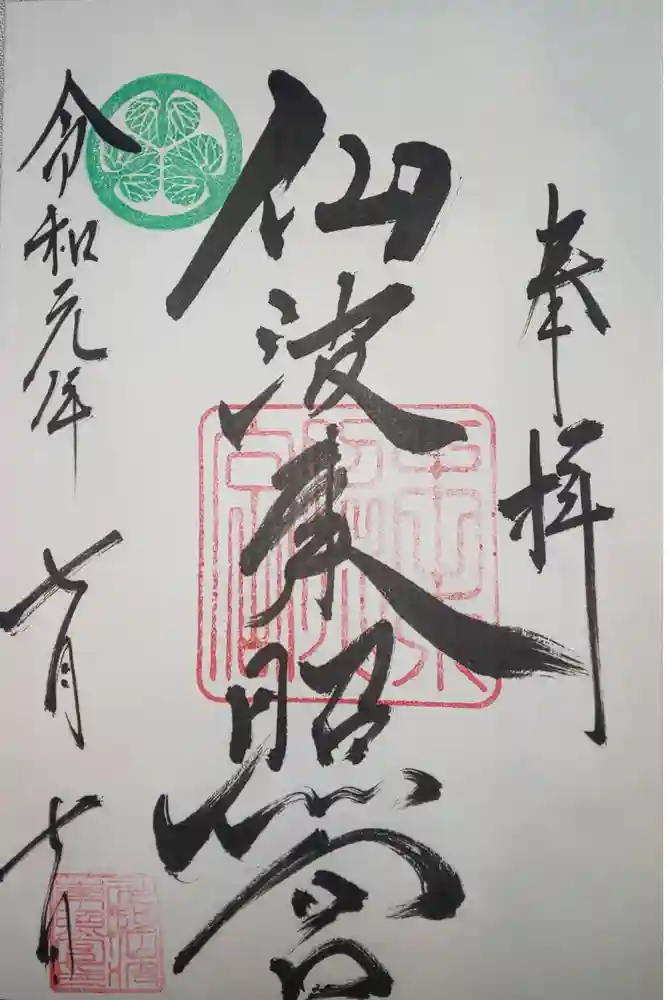 奉拝
仙波東照宮
令和元年
七月